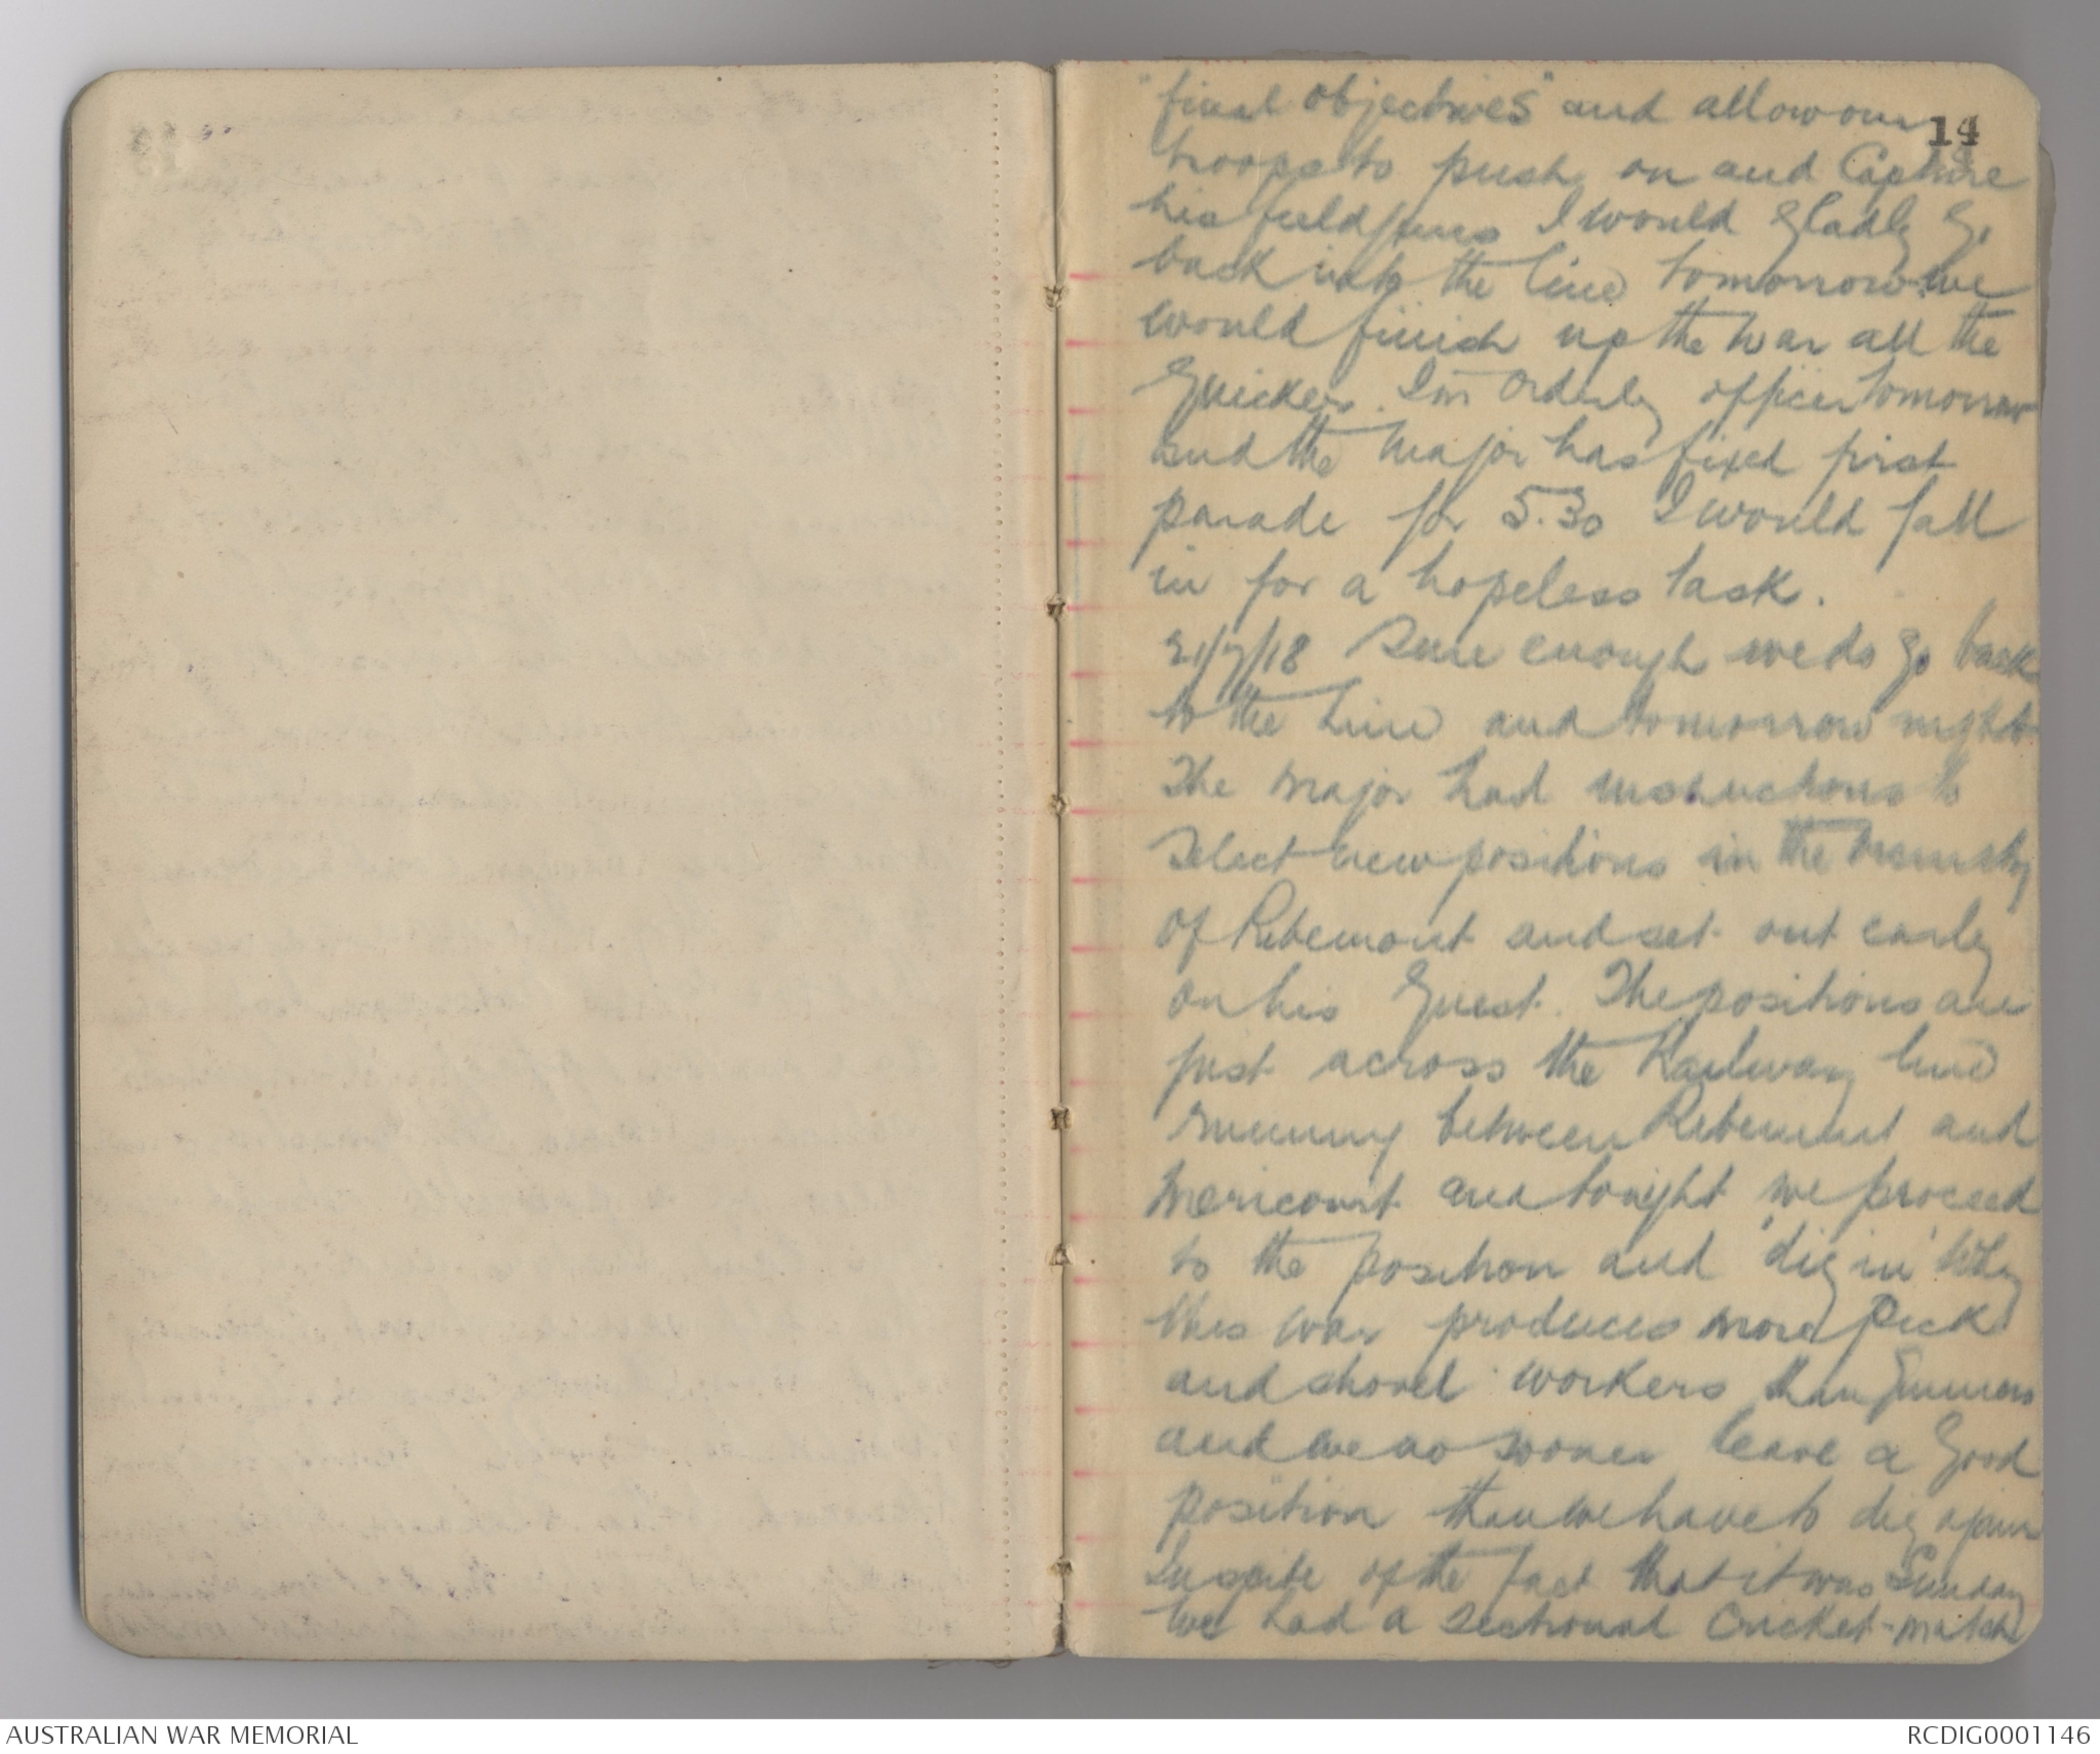 "final objectives" and allow our
14
troops to push on and Capture
his field guns I would gladly go
back into the line tomorrow. we
would finish up the war all the
quicker. I'm Orderly officer tomorrow
and the Major has fixed first
parade for 5.30 I would fall
in for a hopeless task.
21/7/18 Sure enough we do go back
to the line and tomorrow night
The Major had instructions to
select new positions in the vicinity
of Ribemont and set out early
on his quest. The positions are
just across the Railway line
running between Ribemont and
Mericourt and tonight we proceed
to the position and 'dig in' Why
this war produces more Pick
and shovel workers than Gunners
and we no sooner leave a good
position than we have to dig again
In spite of the fact that it was Sunday
we had a sectional Cricket-match
AUSTRALIAN WAR MEMORIAL
RCDIG0001146